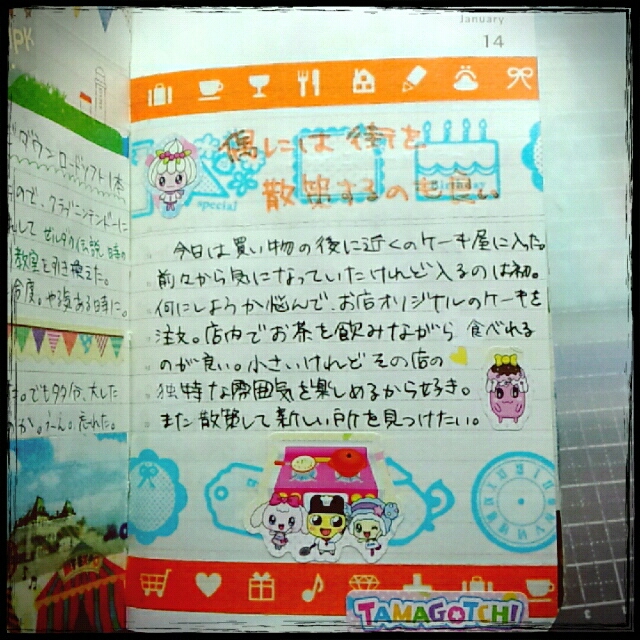 January
14
偶には街を
散策するのも良い
special
Birthday
今日は買い物の後に近くのケーキ屋に入った。
前々から気になっていたけれど入るのは初。
何にしようか悩んで、お店オリジナルのケーキを
注文。店内でお茶を飲みながら食べれる
のが良い。小さいけれどその店の
独特な雰囲気を楽しめるから好き。
また散策して新しい所を見つけたい。
TAMAGOTCHI
ダウンロードソフト1本
ので、クラブニンテンドーに
して ゼルダの伝説 時の
教室を引き換えた。
今度。や須ある時に。
た。でも多分、大した
のか。うーん。忘れた。